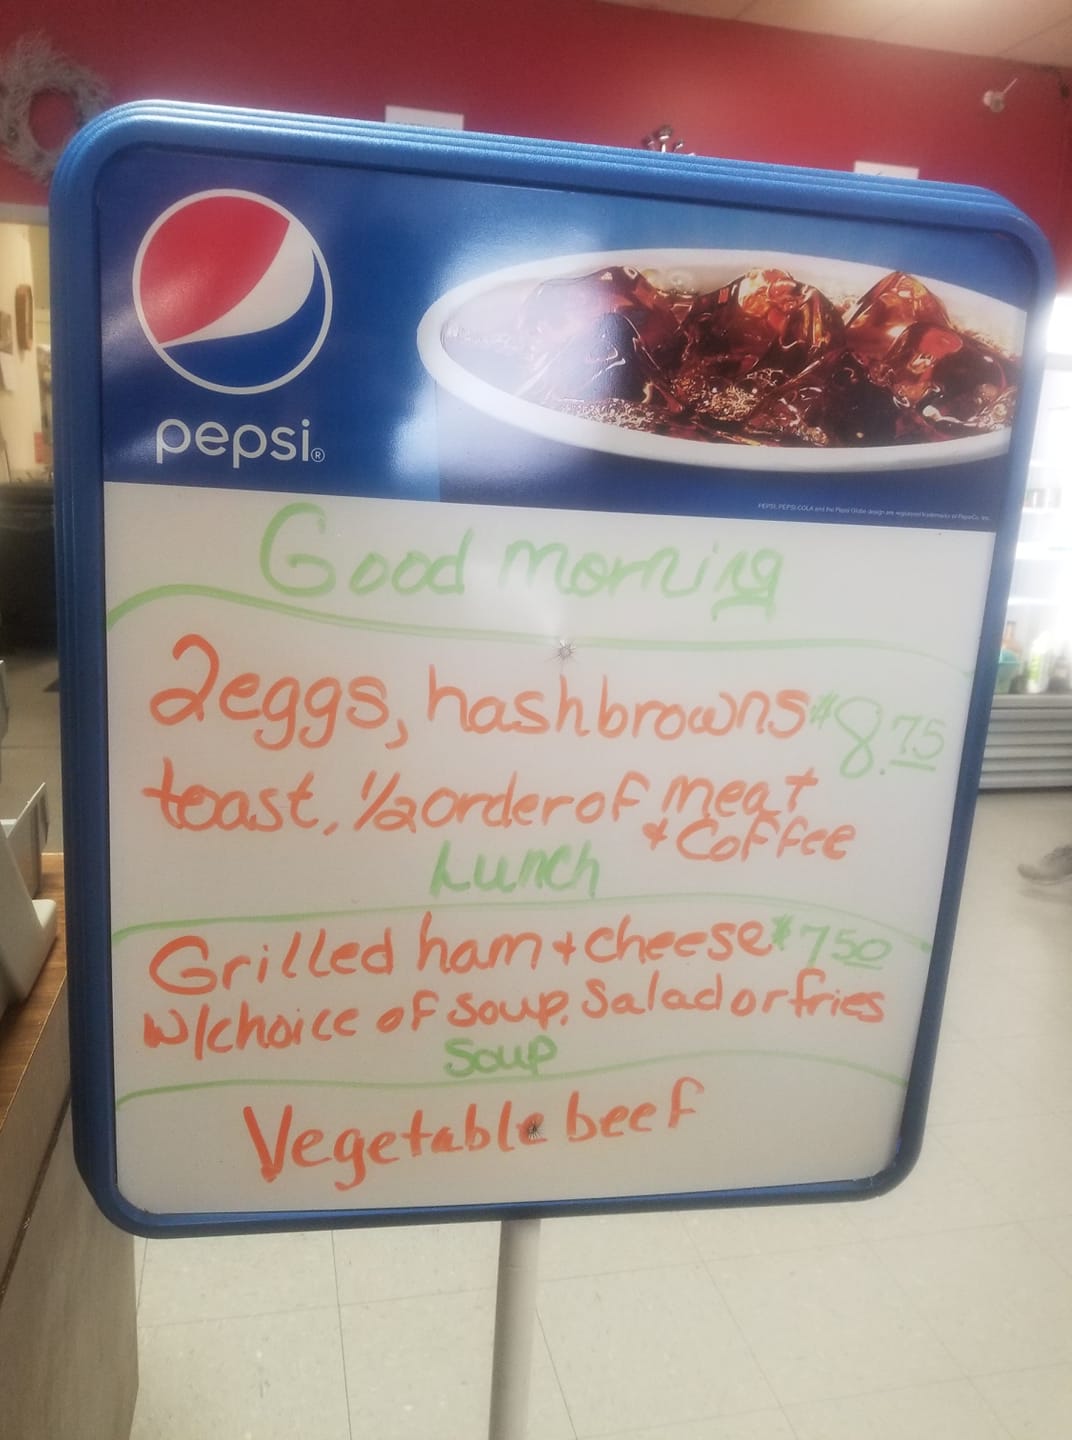 pepsi®
PEPSI, PEPSI-COLA and the Pepsi Globe design are registered trademarks of PepsiCo, Inc.
Good morning
2eggs, hashbrowns $8.75
toast, 1/2 order of meat
+ Coffee
Lunch
Grilled ham + cheese $7.50
w/choice of soup, Salad or fries
Soup
Vegetable beef